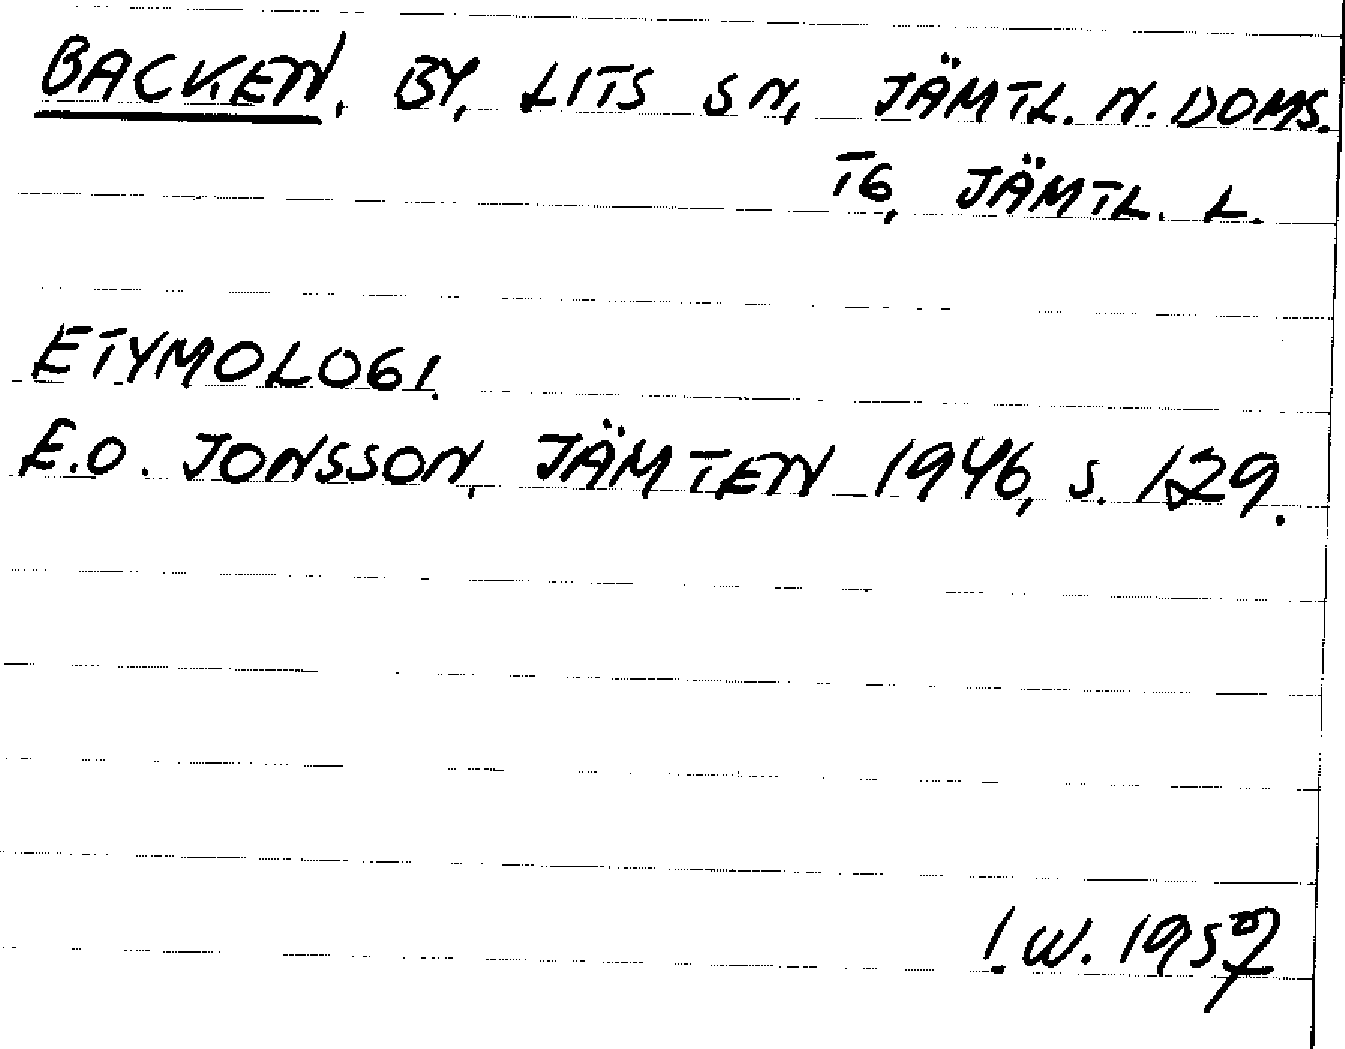 BACKEN, BY, LITS SN, JÄMTL. N. DOMS.
TG, JÄMTL. L.
ETYMOLOGI.
E.O. JONSSON, JÄMTEN 1946, S. 129.
I.W.